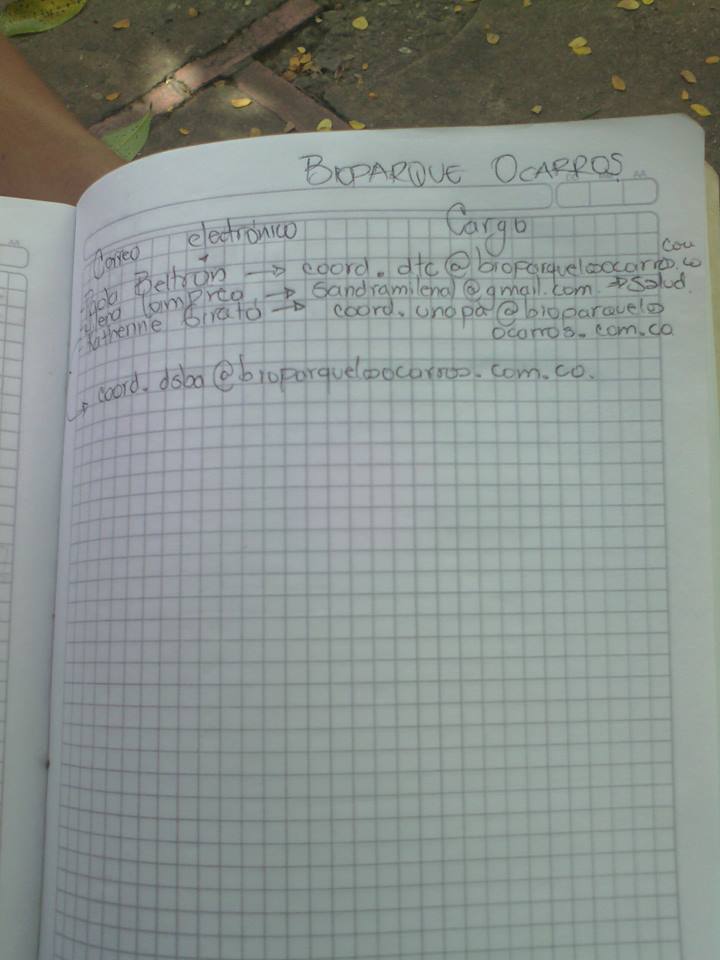 BIOPARQUE OCARROS
Correo electrónico Cargo
Beltrón → coord.dtc@bioparquelosocarros.com.co
→ Sandramilena@gmail.com → Salud.
Katherine Girato → coord.unapa@bioparquelos
ocarros.com.co
→ coord.dsba@bioparquelosocarros.com.co.